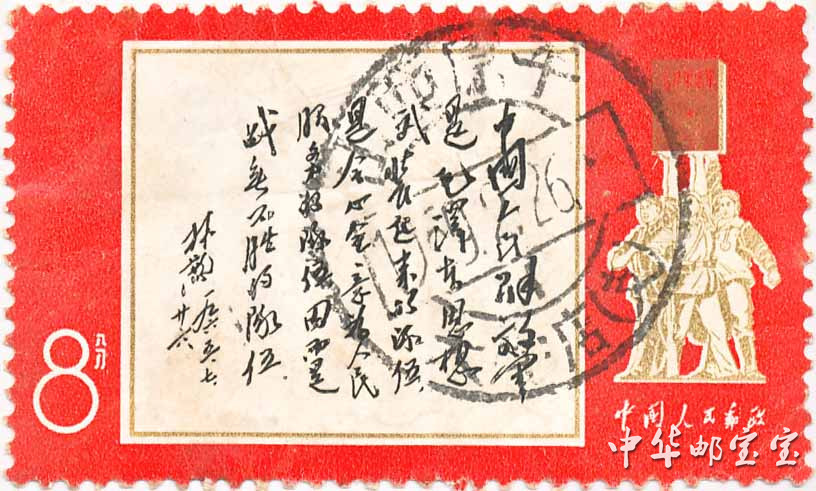 中國人民解放軍
是毛澤东思想
武裝起来的隊伍，
是全心全意为人民
服务的隊伍，因而是
战无不胜的隊伍.
林彪 一九六五、七、廿六
8分
中国人民邮政
中华邮宝宝
26
店